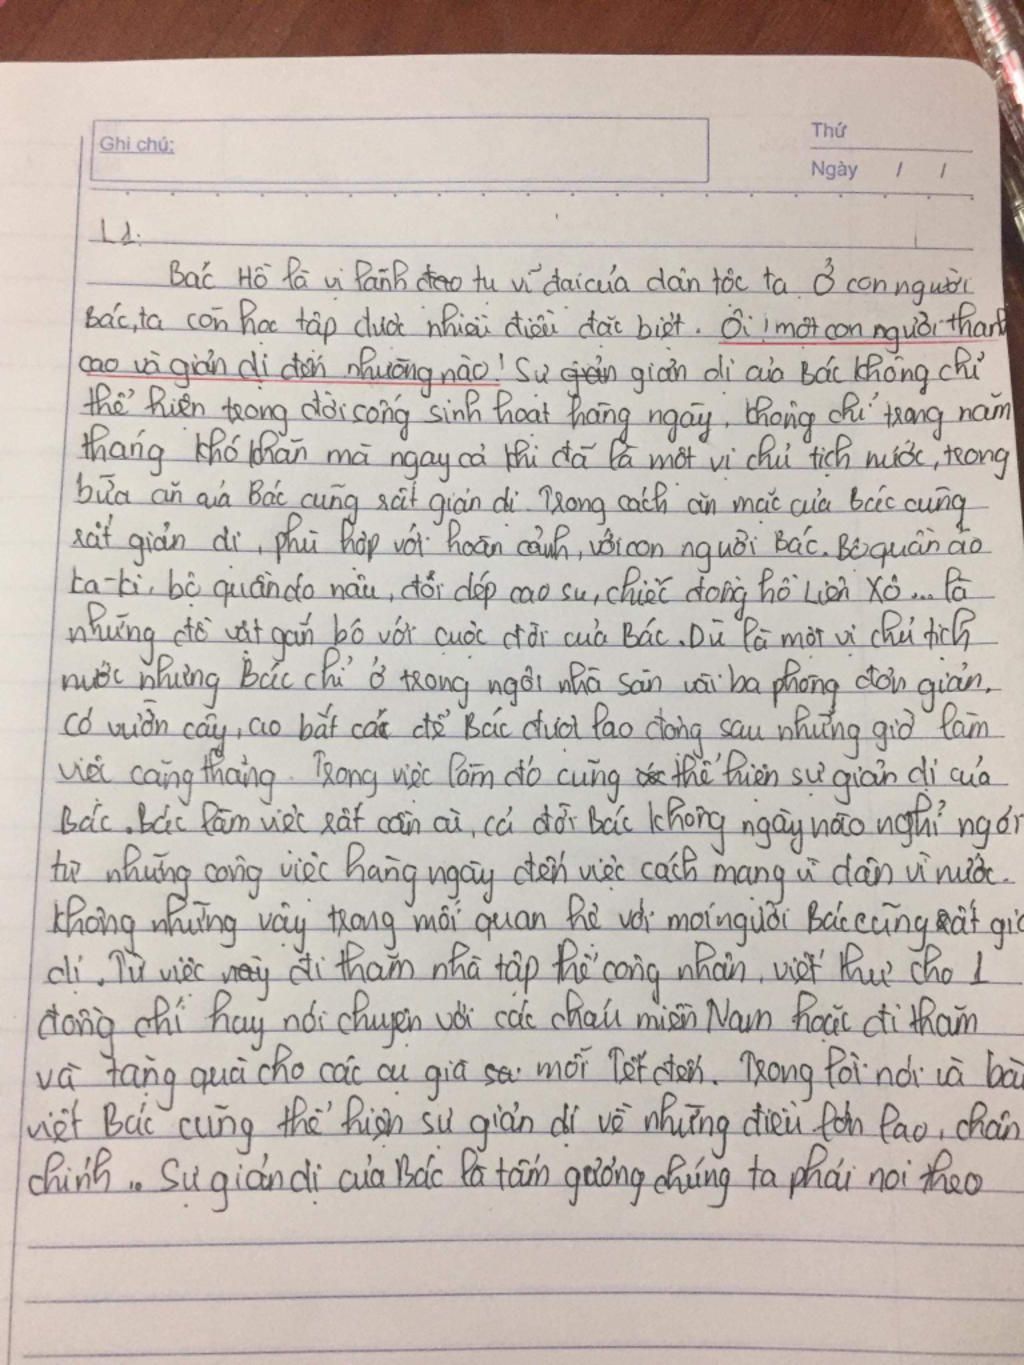 Ghi chú:
Thứ
Ngày / /
L1:
Bác Hồ là vị lãnh đạo tụ vĩ đại của dân tộc ta. Ở con người
Bác, ta còn học tập được nhiều điều đặc biệt. Ôi! một con người thanh
cao và giản dị đến nhường nào! Sự giản giản dị của Bác không chỉ
thể hiện trong đời sống sinh hoạt hàng ngày, không chỉ trong năm
tháng khó khăn mà ngay cả khi đã là một vị chủ tịch nước, trong
bữa ăn của Bác cũng rất giản dị. Trong cách ăn mặc của Bác cũng
rất giản dị, phù hợp với hoàn cảnh, với con người Bác. Bộ quần áo
ka-ki, bộ quần áo nâu, đôi dép cao su, chiếc đồng hồ Liên Xô... là
những đồ vật gắn bó với cuộc đời của Bác. Dù là một vị chủ tịch
nước nhưng Bác chỉ ở trong ngôi nhà sàn vài ba phòng đơn giản.
có vườn cây, ao bắt cá để Bác được lao động sau những giờ làm
việc căng thẳng. Trong việc làm đó cũng thể hiện sự giản dị của
Bác. Bác làm việc rất cần cù, cả đời Bác không ngày nào nghỉ ngơi
từ những công việc hàng ngày đến việc cách mạng vì dân vì nước.
Không những vậy trong mối quan hệ với mọi người Bác cũng rất giả
dị. Từ việc này đi thăm nhà tập thể công nhân, viết thư cho 1
đồng chí hay nói chuyện với các cháu miền Nam hoặc đi thăm
và tặng quà cho các cụ già mỗi Tết đến. Trong lời nói và bài
viết Bác cũng thể hiện sự giản dị về những điều lớn lao, chân
chính.. Sự giản dị của Bác là tấm gương chúng ta phải noi theo